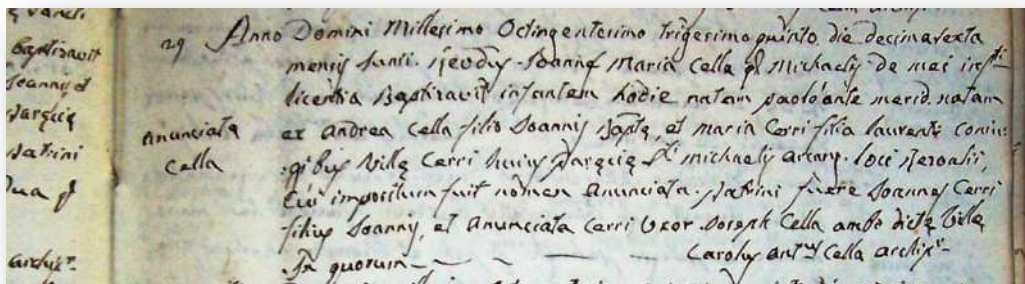 Baptizavit
Joannis et
Parocię
Patrini
archipr.
29 Anno Domini Millesimo Octingentesimo trigesimo quinto die decima sexta
mensis Joanne Maria Cella Michaelis de mei
licentia Baptizavit infantem hodie natam paolo ante merid. natam
Anunciata
Cella
ex Andrea Cella filio Joannis Baptę, et Maria Cerri filia Laurentii coniu-
gibus Villę Cerri huius Parocię Sti Michaelis Arcang. loci
Cui impositum fuit nomen Anunciata. Patrini fuere Joannes Cerri
filius Joannis, et Anunciata Cerri Uxor Joseph Cella ambo dictę Villę
In quorum — — — — Carolus Antus Cella archipr.